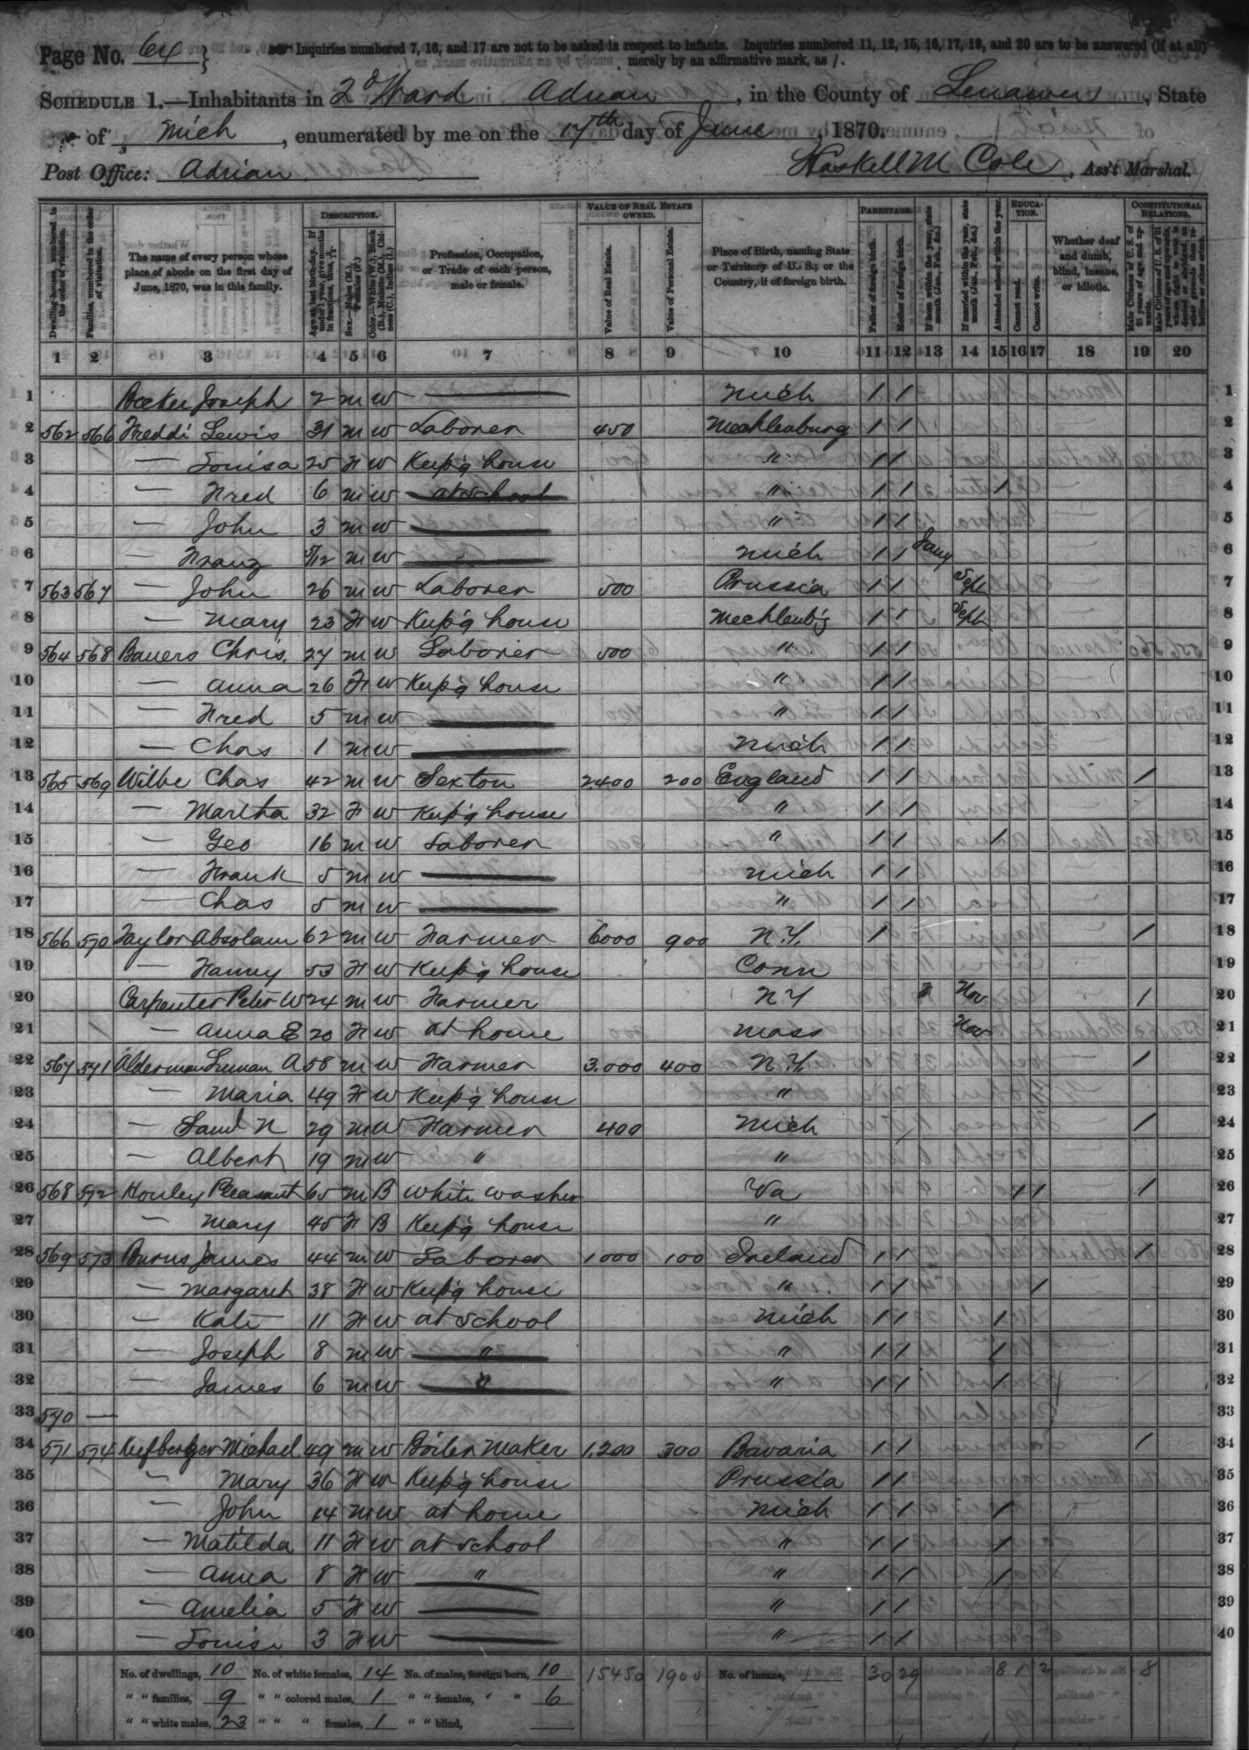 Page No. 64 } Inquiries numbered 7, 16, and 17 are not to be asked in respect to infants. Inquiries numbered 11, 12, 15, 16, 17, 19, and 20 are to be answered (if at all)
merely by an affirmative mark, as /.
SCHEDULE 1.—Inhabitants in 2d Ward Adrian, in the County of Lenawee, State
of Mich, enumerated by me on the 17th day of June, 1870.
Post Office: Adrian Haskell M Cole, Ass't Marshal.
DESCRIPTION. VALUE OF REAL ESTATE OWNED. PARENTAGE. EDUCATION. CONSTITUTIONAL RELATIONS.
The name of every person whose place of abode on the first day of June, 1870, was in this family. Profession, Occupation, or Trade of each person, male or female. Value of Real Estate. Value of Personal Estate. Place of Birth, naming State or Territory of U. S.; or the Country, if of foreign birth. Father of foreign birth. Mother of foreign birth. Attended school within the year. Cannot read. Cannot write. Whether deaf and dumb, blind, insane, or idiotic.
1 2 3 4 5 6 7 8 9 10 11 12 13 14 15 16 17 18 19 20
1 Joseph 2 m W Mich / / 1
2 562 566 Freddi Lewis 31 m W Laborer 450 Mecklenburg / / 2
3 — Louisa 25 F W Keep'g house " / / 3
4 — Fred 6 m W at school " / / / 4
5 — John 3 m W " / / 5
6 — Franz 5/12 m W Mich / / Jany 6
7 563 567 — John 26 m W Laborer 500 Prussia / / Sept 7
8 — Mary 23 F W Keep'g house Mecklenb'g / / Sept 8
9 564 568 Bauers Chris. 27 m W Laborer 500 " / / 9
10 — Anna 26 F W Keep'g house " / / 10
11 — Fred 5 m W " / / 11
12 — Chas 1 m W " Mich / / 12
13 565 569 Wilbe Chas 42 m W Sexton 2400 200 England / / / 13
14 — Martha 32 F W Keep'g house " / / 14
15 — Geo 16 m W Laborer " / / / 15
16 — Frank 5 m W Mich / / 16
17 — Chas 5 m W " / / 17
18 566 570 Taylor Absolam 62 m W Farmer 6000 900 N.Y. / / 18
19 — Fanny 53 F W Keep'g house Conn 19
20 Carpenter Peter W 24 m W Farmer N Y Nov / 20
21 — Anna E 20 F W at home Mass Nov 21
22 567 571 Alderman Luman A 58 m W Farmer 3,000 400 N.Y. / 22
23 — Maria 49 F W Keep'g house " 23
24 — Saml N 29 m W Farmer 400 Mich / 24
25 — Albert 19 m W " " 25
26 568 572 Pleasant 65 m B White washer Va / / / 26
27 — Mary 45 F B Keep'g house " 27
28 569 573 Burns James 44 m W Laborer 1000 100 Ireland / / / 28
29 — Margaret 38 F W Keep'g house " / / / 29
30 — Kate 11 F W at school Mich / / / 30
31 — Joseph 8 m W " " / / / 31
32 — James 6 m W " " / / / 32
33 570 — 33
34 571 574 Michael 49 m W Boiler Maker 1,200 300 Bavaria / / / 34
35 — Mary 36 F W Keep'g house Prussia / / 35
36 — John 14 m W at home Mich / / / 36
37 — Matilda 11 F W at school " / / / 37
38 — Anna 8 F W " " / / / 38
39 — Amelia 5 F W " / / 39
40 — Louise 3 F W " / / 40
No. of dwellings, 10 No. of white females, 14 No. of males, foreign born, 10 15450 1900 No. of insane, 30 29 8 1 2 8
" " families, 9 " " colored males, 1 " " females, " " 6
" " white males, 23 " " " females, 1 " " blind,